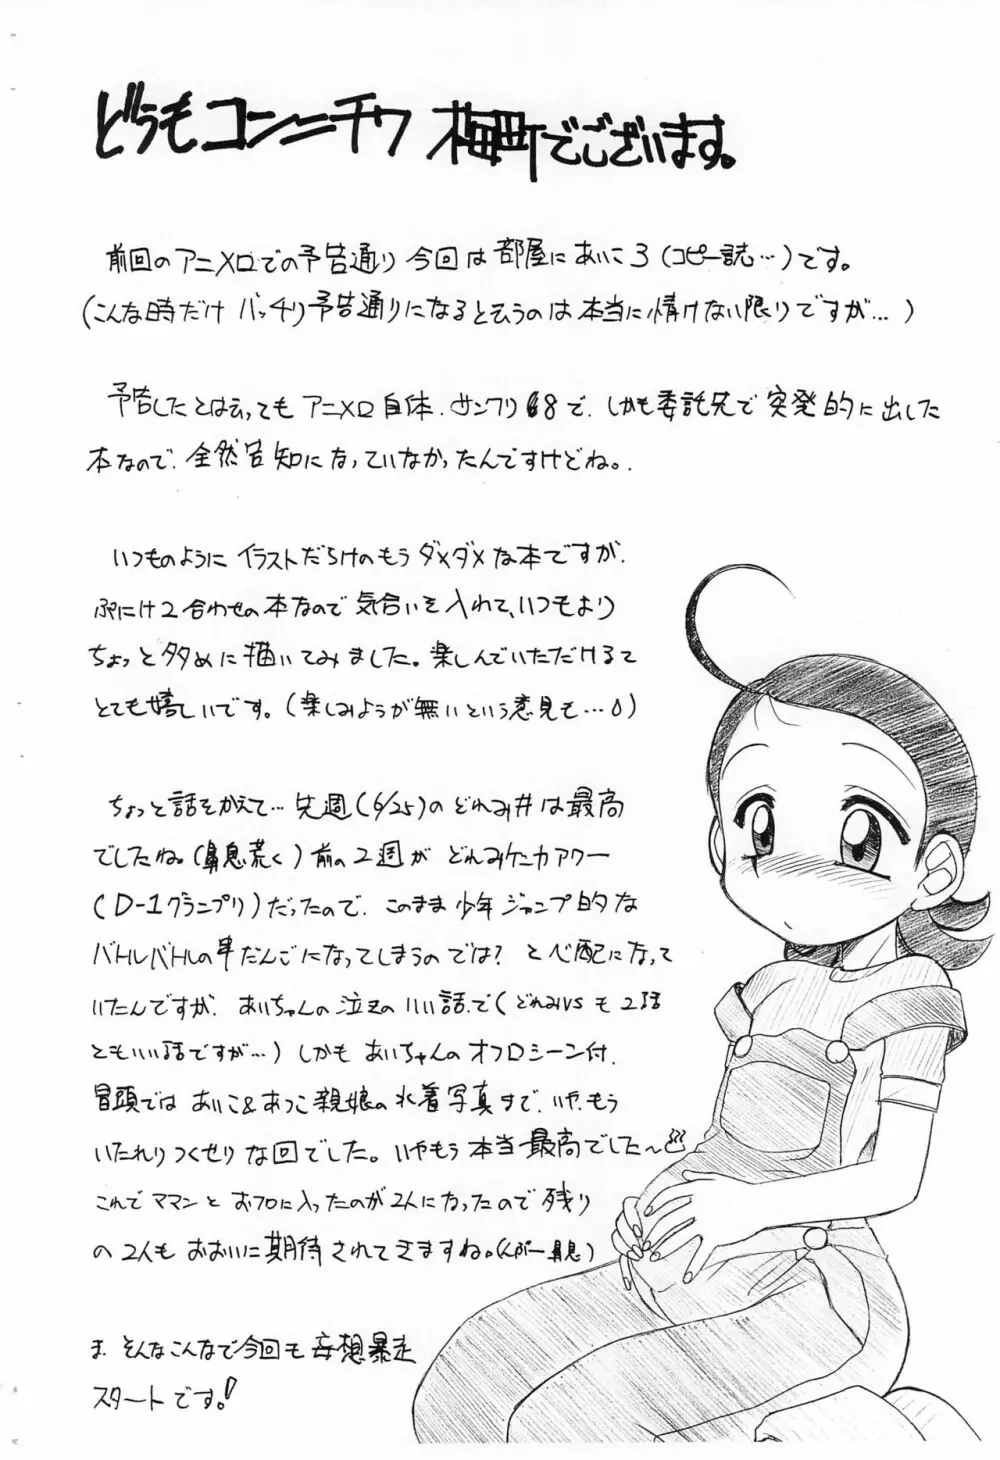 どうもコンニチワ 梅町でございます。
前回のアニメロでの予告通り今回は部屋にあいこ3(コピー誌…)です。
(こんな時だけ バッチリ予告通りになると云うのは本当に情けない限りですが…)
予告したとは云ってもアニメロ自体、サンクリ8で、しかも委託先で突発的に出した
本なので、全然告知になっていなかったんですけどね。
いつものように イラストだらけのもうダメダメな本ですが、
ぷにけ2合わせの本なので気合いを入れて、いつもより
ちょっと多めに描いてみました。楽しんでいただけると
とても嬉しいです。(楽しみようが無いという意見も…)
ちょっと話をかえて…先週(6/25)のどれみ#は最高
でしたね。(鼻息荒く)前の2週がどれみケンカアワー
(D-1グランプリ)だったので、このまま少年ジャンプ的な
バトルバトルの串だんごになってしまうのでは?と心配になって
いたんですが、あいちゃんの泣きのいい話で(どれみVSも2話
ともいい話ですが…)しかもあいちゃんのオフロシーン付、
冒頭ではあいこ&あつこ親娘の水着写真まで、いや、もう
いたれりつくせりな回でした。いやもう本当最高でした〜
これでママンとおフロに入ったのが2人になったので残り
の2人もおおいに期待されてきますね。(んぷー鼻息)
ま、そんなこんなで今回も妄想暴走
スタートです。!